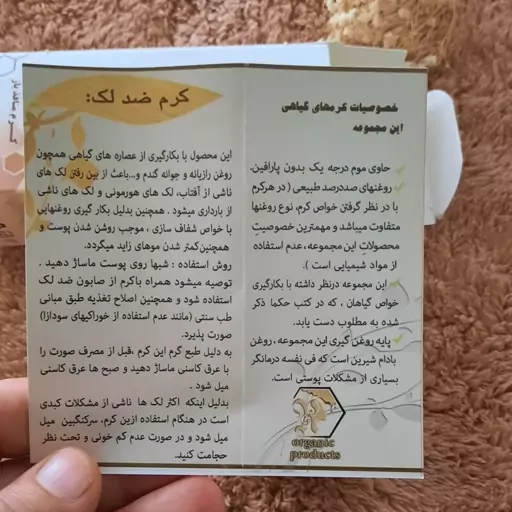 خصوصیات کرمهای گیاهی
این مجموعه
حاوی موم درجه یک بدون پارافین.
روغنهای صددرصد طبیعی ( در هرکرم
با در نظر گرفتن خواص کرم، نوع روغنها
متفاوت میباشد و مهمترین خصوصیت
محصولات این مجموعه، عدم استفاده
از مواد شیمیایی است ).
این مجموعه درنظر داشته با بکارگیری
خواص گیاهان ، که در کتب حکما ذکر
شده به مطلوب دست یابد.
پایه روغن گیری این مجموعه، روغن
بادام شیرین است که فی نفسه درمانگر
بسیاری از مشکلات پوستی است.
organic
products
کرم ضد لک:
این محصول با بکارگیری از عصاره های گیاهی همچون
روغن رازیانه و جوانه گندم و...باعث از بین رفتن لک های
ناشی از آفتاب، لک های هورمونی و لک های ناشی
از بارداری میشود . همچنین بدلیل بکار گیری روغنهایی
با خواص شفاف سازی ، موجب روشن شدن پوست و
همچنین کمتر شدن موهای زاید میگردد.
روش استفاده : شبها روی پوست ماساژ دهید .
توصیه میشود همراه باکرم از صابون ضد لک
استفاده شود و همچنین اصلاح تغذیه طبق مبانی
طب سنتی (مانند عدم استفاده از خوراکیهای سودازا)
صورت پذیرد.
به دلیل طبع گرم این کرم ،قبل از مصرف صورت را
با عرق کاسنی ماساژ دهید و صبح ها عرق کاسنی
میل شود .
بدلیل اینکه اکثر لک ها ناشی از مشکلات کبدی
است در هنگام استفاده ازین کرم، سرکنگبین میل
میل شود و در صورت عدم کم خونی و تحت نظر
حجامت کنید.